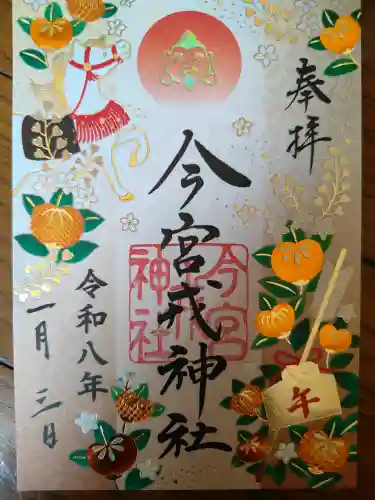 奉拝
今宮戎神社
今宮戎神社
令和八年
一月三日
午